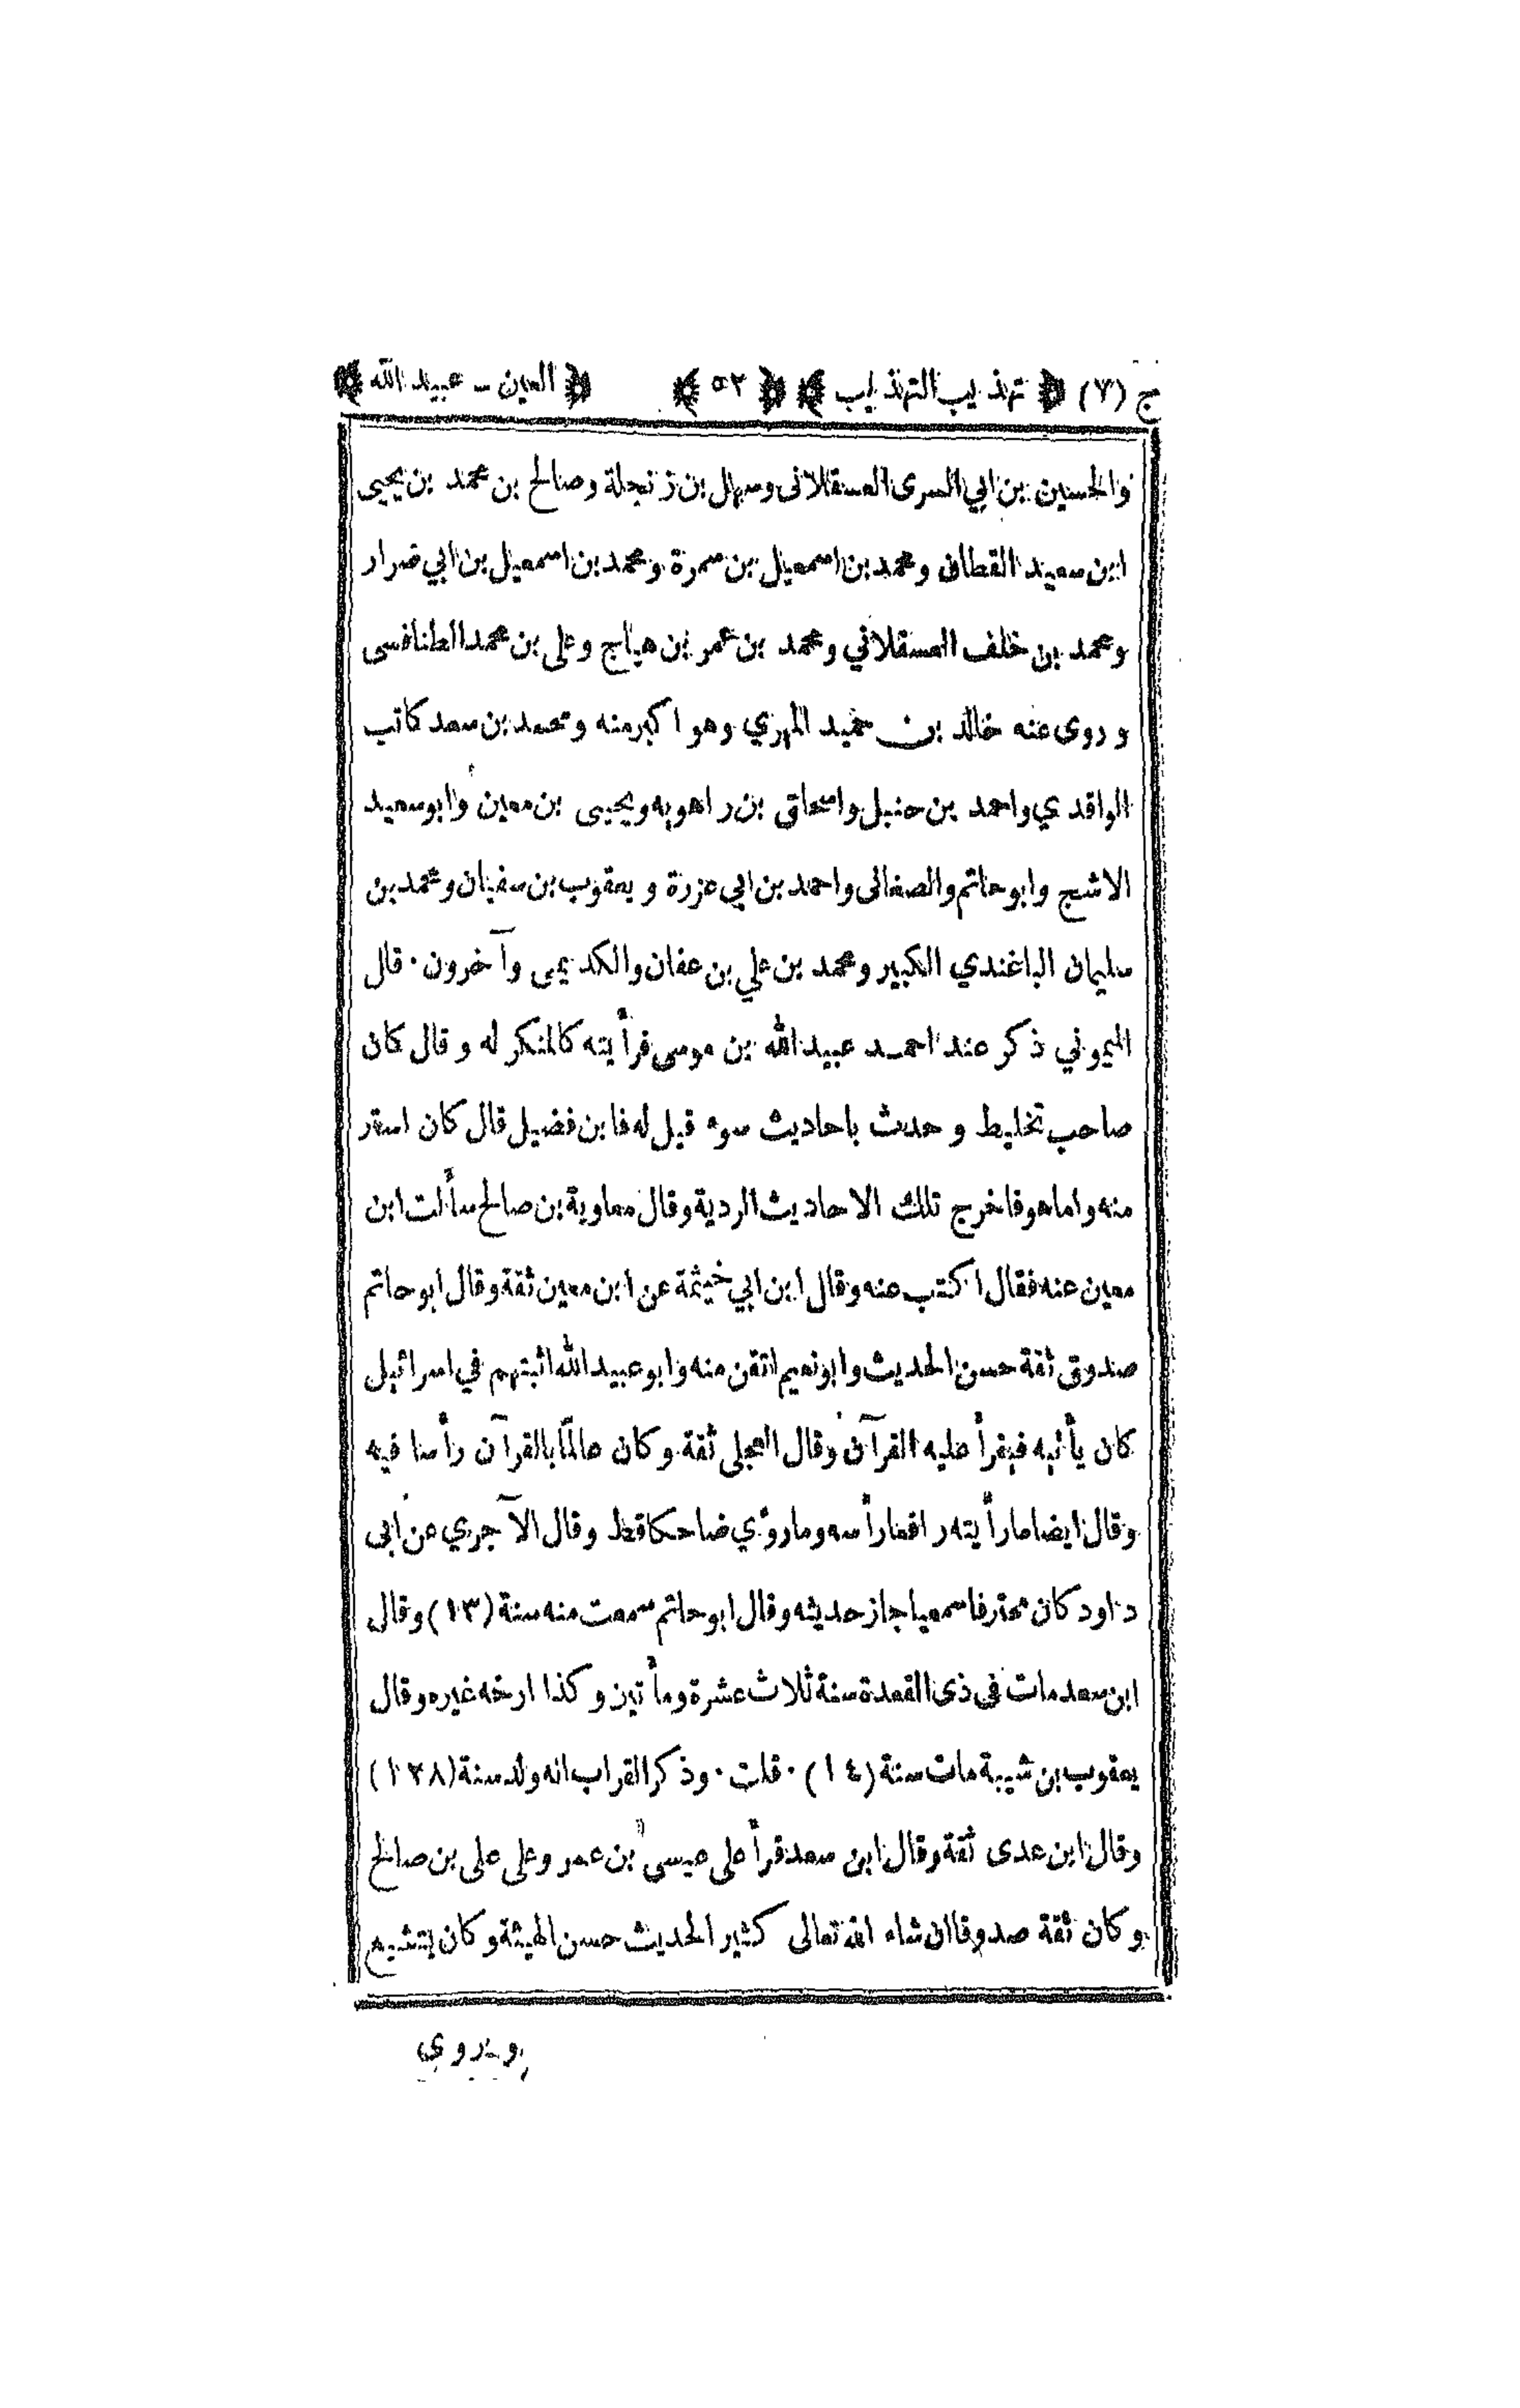 ج (٧) ﴿ تهذيب التهذيب ﴾ ﴿ ٥٢ ﴾ ﴿ العين - عبيد الله ﴾
والحسين بن ابي السرى العسقلانى وسهل بن زنجلة وصالح بن محمد بن يحيى
ابن سعيد القطان ومحمد بن اسمعيل بن سمرة ومحمد بن اسمعيل بن ابي ضرار
ومحمد بن خلف العسقلاني ومحمد بن عمر بن هياج وعلى بن محمد الطنافسى
وروى عنه خالد بن حميد المهري وهو اكبر منه ومحمد بن سعد كاتب
الواقدي واحمد بن حنبل واسحاق بن راهويه ويحيى بن معين وابوسعيد
الاشج وابوحاتم والصغانى واحمد بن ابي عزرة ويعقوب بن سفيان ومحمد بن
سليمان الباغندي الكبير ومحمد بن علي بن عفان والكديمى وآخرون · قال
الميموني ذكر عند احمد عبيد الله بن موسى فرأيته كالمنكر له وقال كان
صاحب تخليط وحدث باحاديث سوء قيل له فابن فضيل قال كان استر
منه واما هو فاخرج تلك الاحاديث الردية وقال معاوية بن صالح سألت ابن
معين عنه فقال اكتب عنه وقال ابن ابي خيثمة عن ابن معين ثقة وقال ابو حاتم
صدوق ثقة حسن الحديث وابو نعيم اتقن منه وابو عبيد الله اثبتهم في اسرائيل
كان يأتيه فيقرأ عليه القرآن وقال العجلى ثقة وكان عالمًا بالقرآن رأسا فيه
وقال ايضا ما رأيته رافعا رأسه وما رؤي ضاحكا قط وقال الآجري عن ابى
داود كان محترفا سمعيا جاز حديثه وقال ابوحاتم سمعت منه سنة (١٣) وقال
ابن سعد مات فى ذى القعدة سنة ثلاث عشرة ومأتين وكذا ارخه غيره وقال
يعقوب بن شيبة مات سنة (١٤) · قلت · وذكر القراب انه ولد سنة (١٢٨)
وقال ابن عدى ثقة وقال ابن سعد قرأ على عيسى بن عمر وعلى على بن صالح
وكان ثقة صدوقا ان شاء الله تعالى كثير الحديث حسن الهيئة وكان يتشيع
وروي